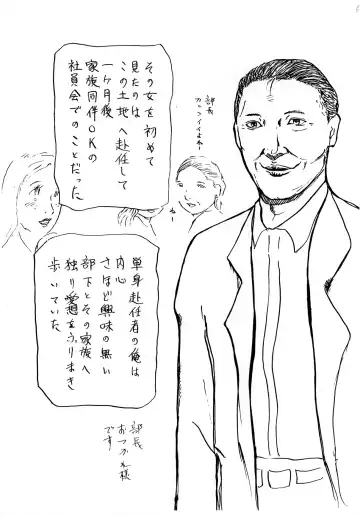 その女を初めて
見たのは
この土地へ赴任して
一ヶ月後
家族同伴OKの
社員会でのことだった
部長
カッコイイよねー
ね
単身赴任者の俺は
内心
さほど興味の無い
部下とその家族へ
独り愛想をふりまき
歩いていた
部長
おつかれ様
です